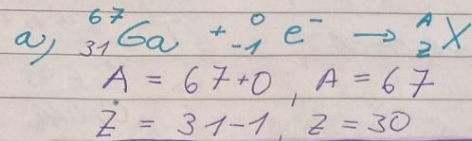 a, ⁶⁷₃₁Ga + ⁰₋₁e⁻ → ᴬ_Z X
A = 67+0, A = 67
Z = 31-1, Z = 30